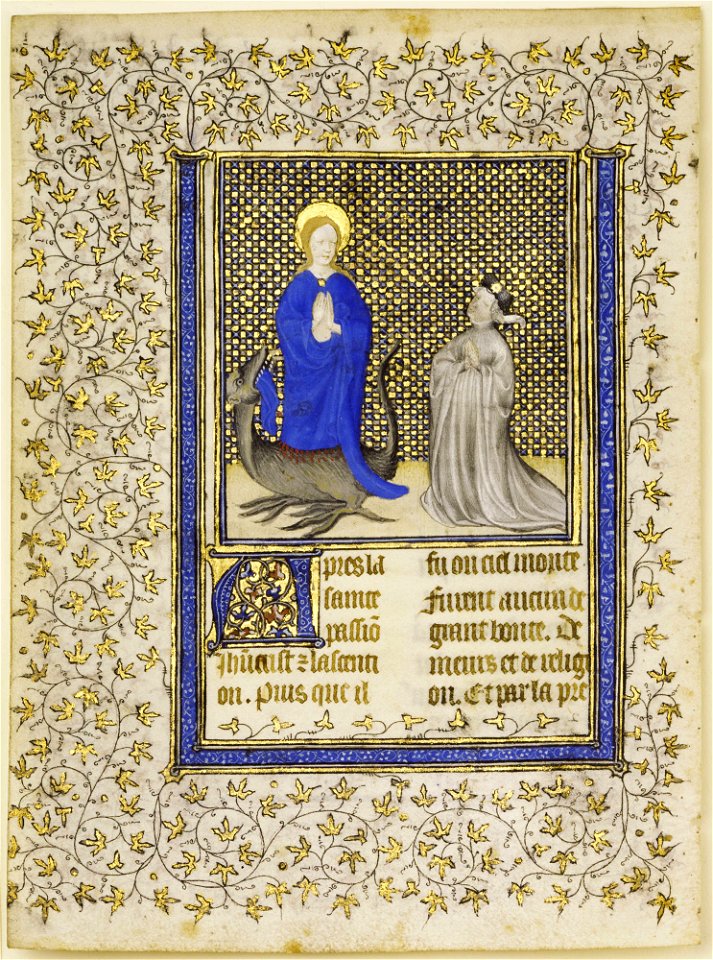 Apres la
sainte
passiõ
Jhũcrist ⁊ lascenti
on. Puis que il
fu on ciel monte
Furent aucun de
grant bonte. De
meurs et de religi
on. Et par la pre